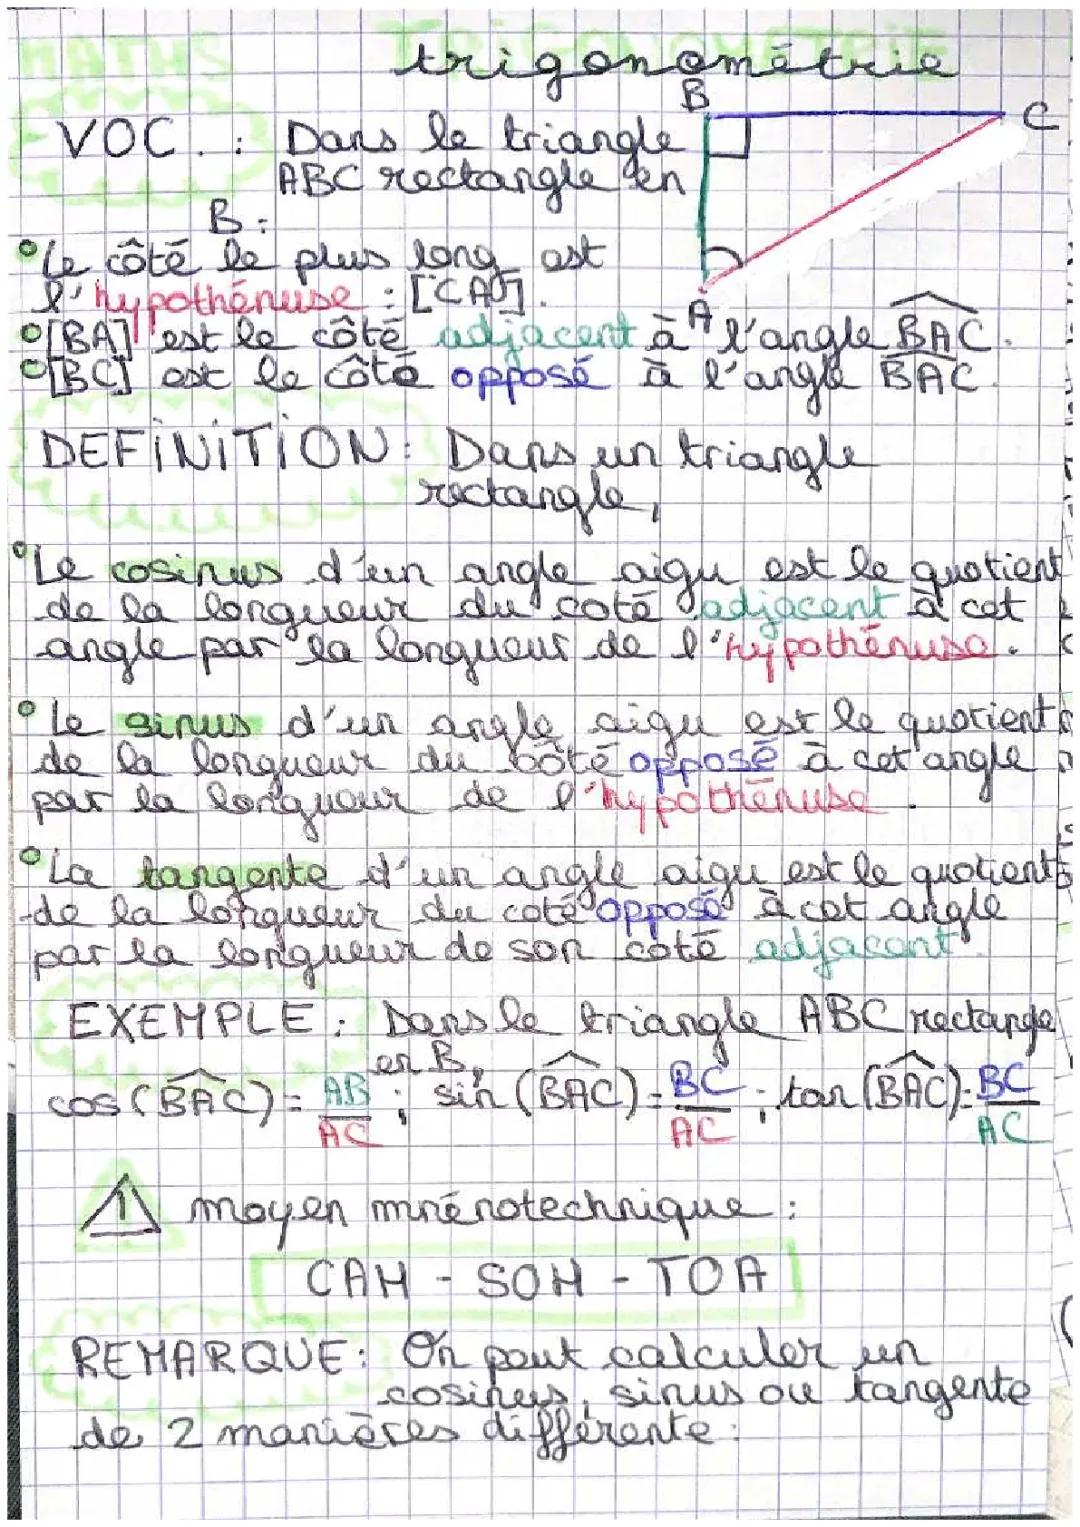 MATHS TRIGONOMÉTRIE
trigonométrie
B
C
VOC. : Dans le triangle
ABC rectangle en
B :
Le côté le plus long est
l'hypothénuse : [CA].
A
[BA] est le côté adjacent à l'angle BAC.
[BC] est le côté opposé à l'angle BAC.
DEFINITION : Dans un triangle
rectangle,
Le cosinus d'un angle aigu est le quotient
de la longueur du coté adjacent à cet
angle par la longueur de l'hypothénuse.
Le sinus d'un angle aigu est le quotient
de la longueur du côté opposé à cet angle
par la longueur de l'hypothénuse.
La tangente d'un angle aigu est le quotient
de la longueur du coté opposé à cet angle
par la longueur de son coté adjacent.
EXEMPLE : Dans le triangle ABC rectangle
en B,
cos(BAC) = AB/AC ; sin(BAC) = BC/AC ; tan(BAC) = BC/AC
! moyen mnénotechnique :
CAH - SOH - TOA
REMARQUE : On peut calculer un
cosinus, sinus ou tangente
de 2 manières différente :